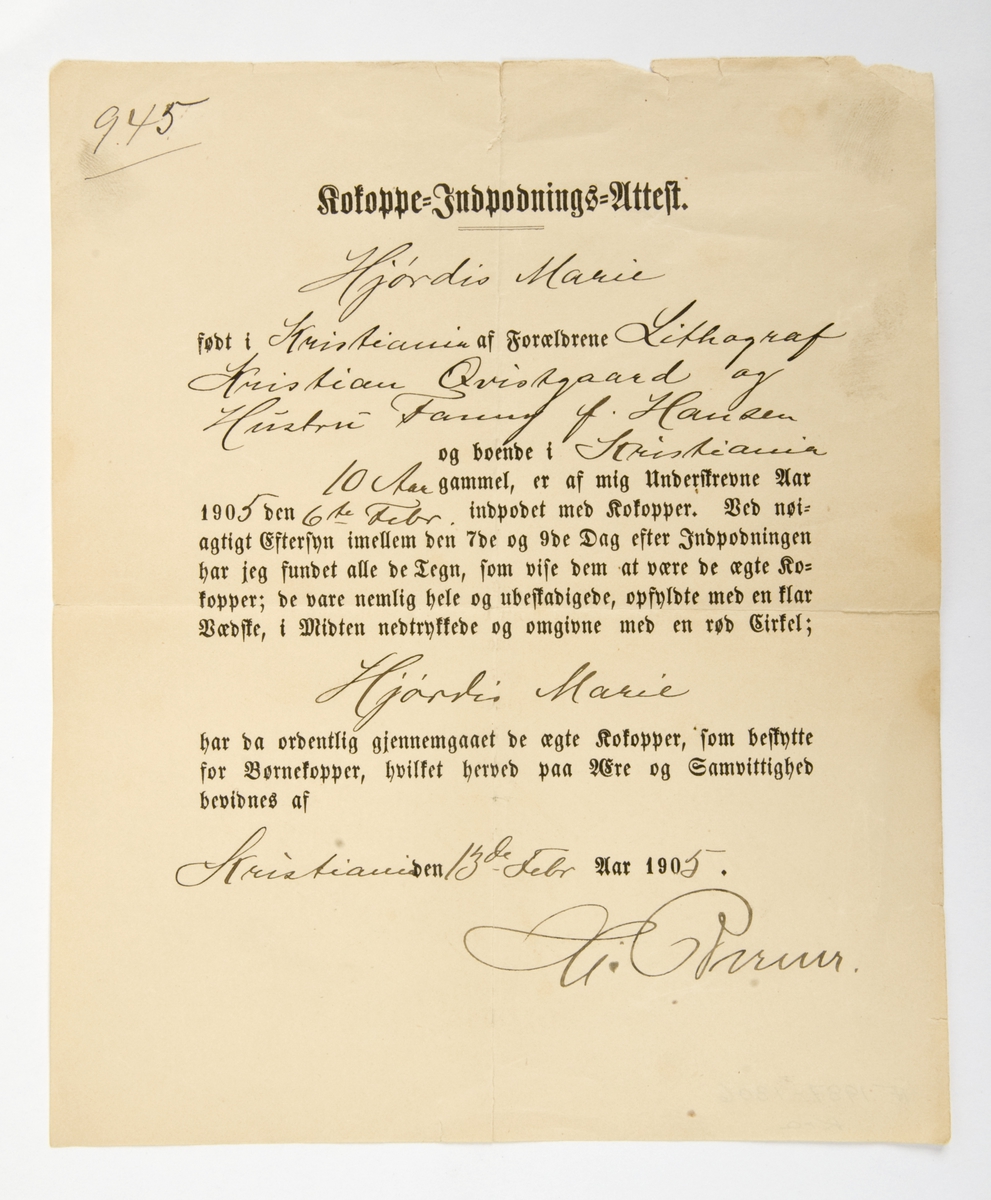 945
Kokoppe-Indpodnings-Attest.
Hjørdis Marie
født i Kristiania af Forældrene Lithograf
Kristian Qvistgaard og
Hustru Fanny f. Hansen
og boende i Kristiania
10 Aar gammel, er af mig Underskrevne Aar
1905 den 6te Febr. indpodet med Kokopper. Ved nøi-
agtigt Eftersyn imellem den 7de og 9de Dag efter Indpodningen
har jeg fundet alle de Tegn, som vise dem at være de ægte Ko-
kopper; de vare nemlig hele og ubeskadigede, opfyldte med en klar
Vædske, i Midten nedtrykkede og omgivne med en rød Cirkel;
Hjørdis Marie
har da ordentlig gjennemgaaet de ægte Kokopper, som beskytte
for Børnekopper, hvilket herved paa Ære og Samvittighed
bevidnes af
Kristiania den 13de Febr Aar 1905.